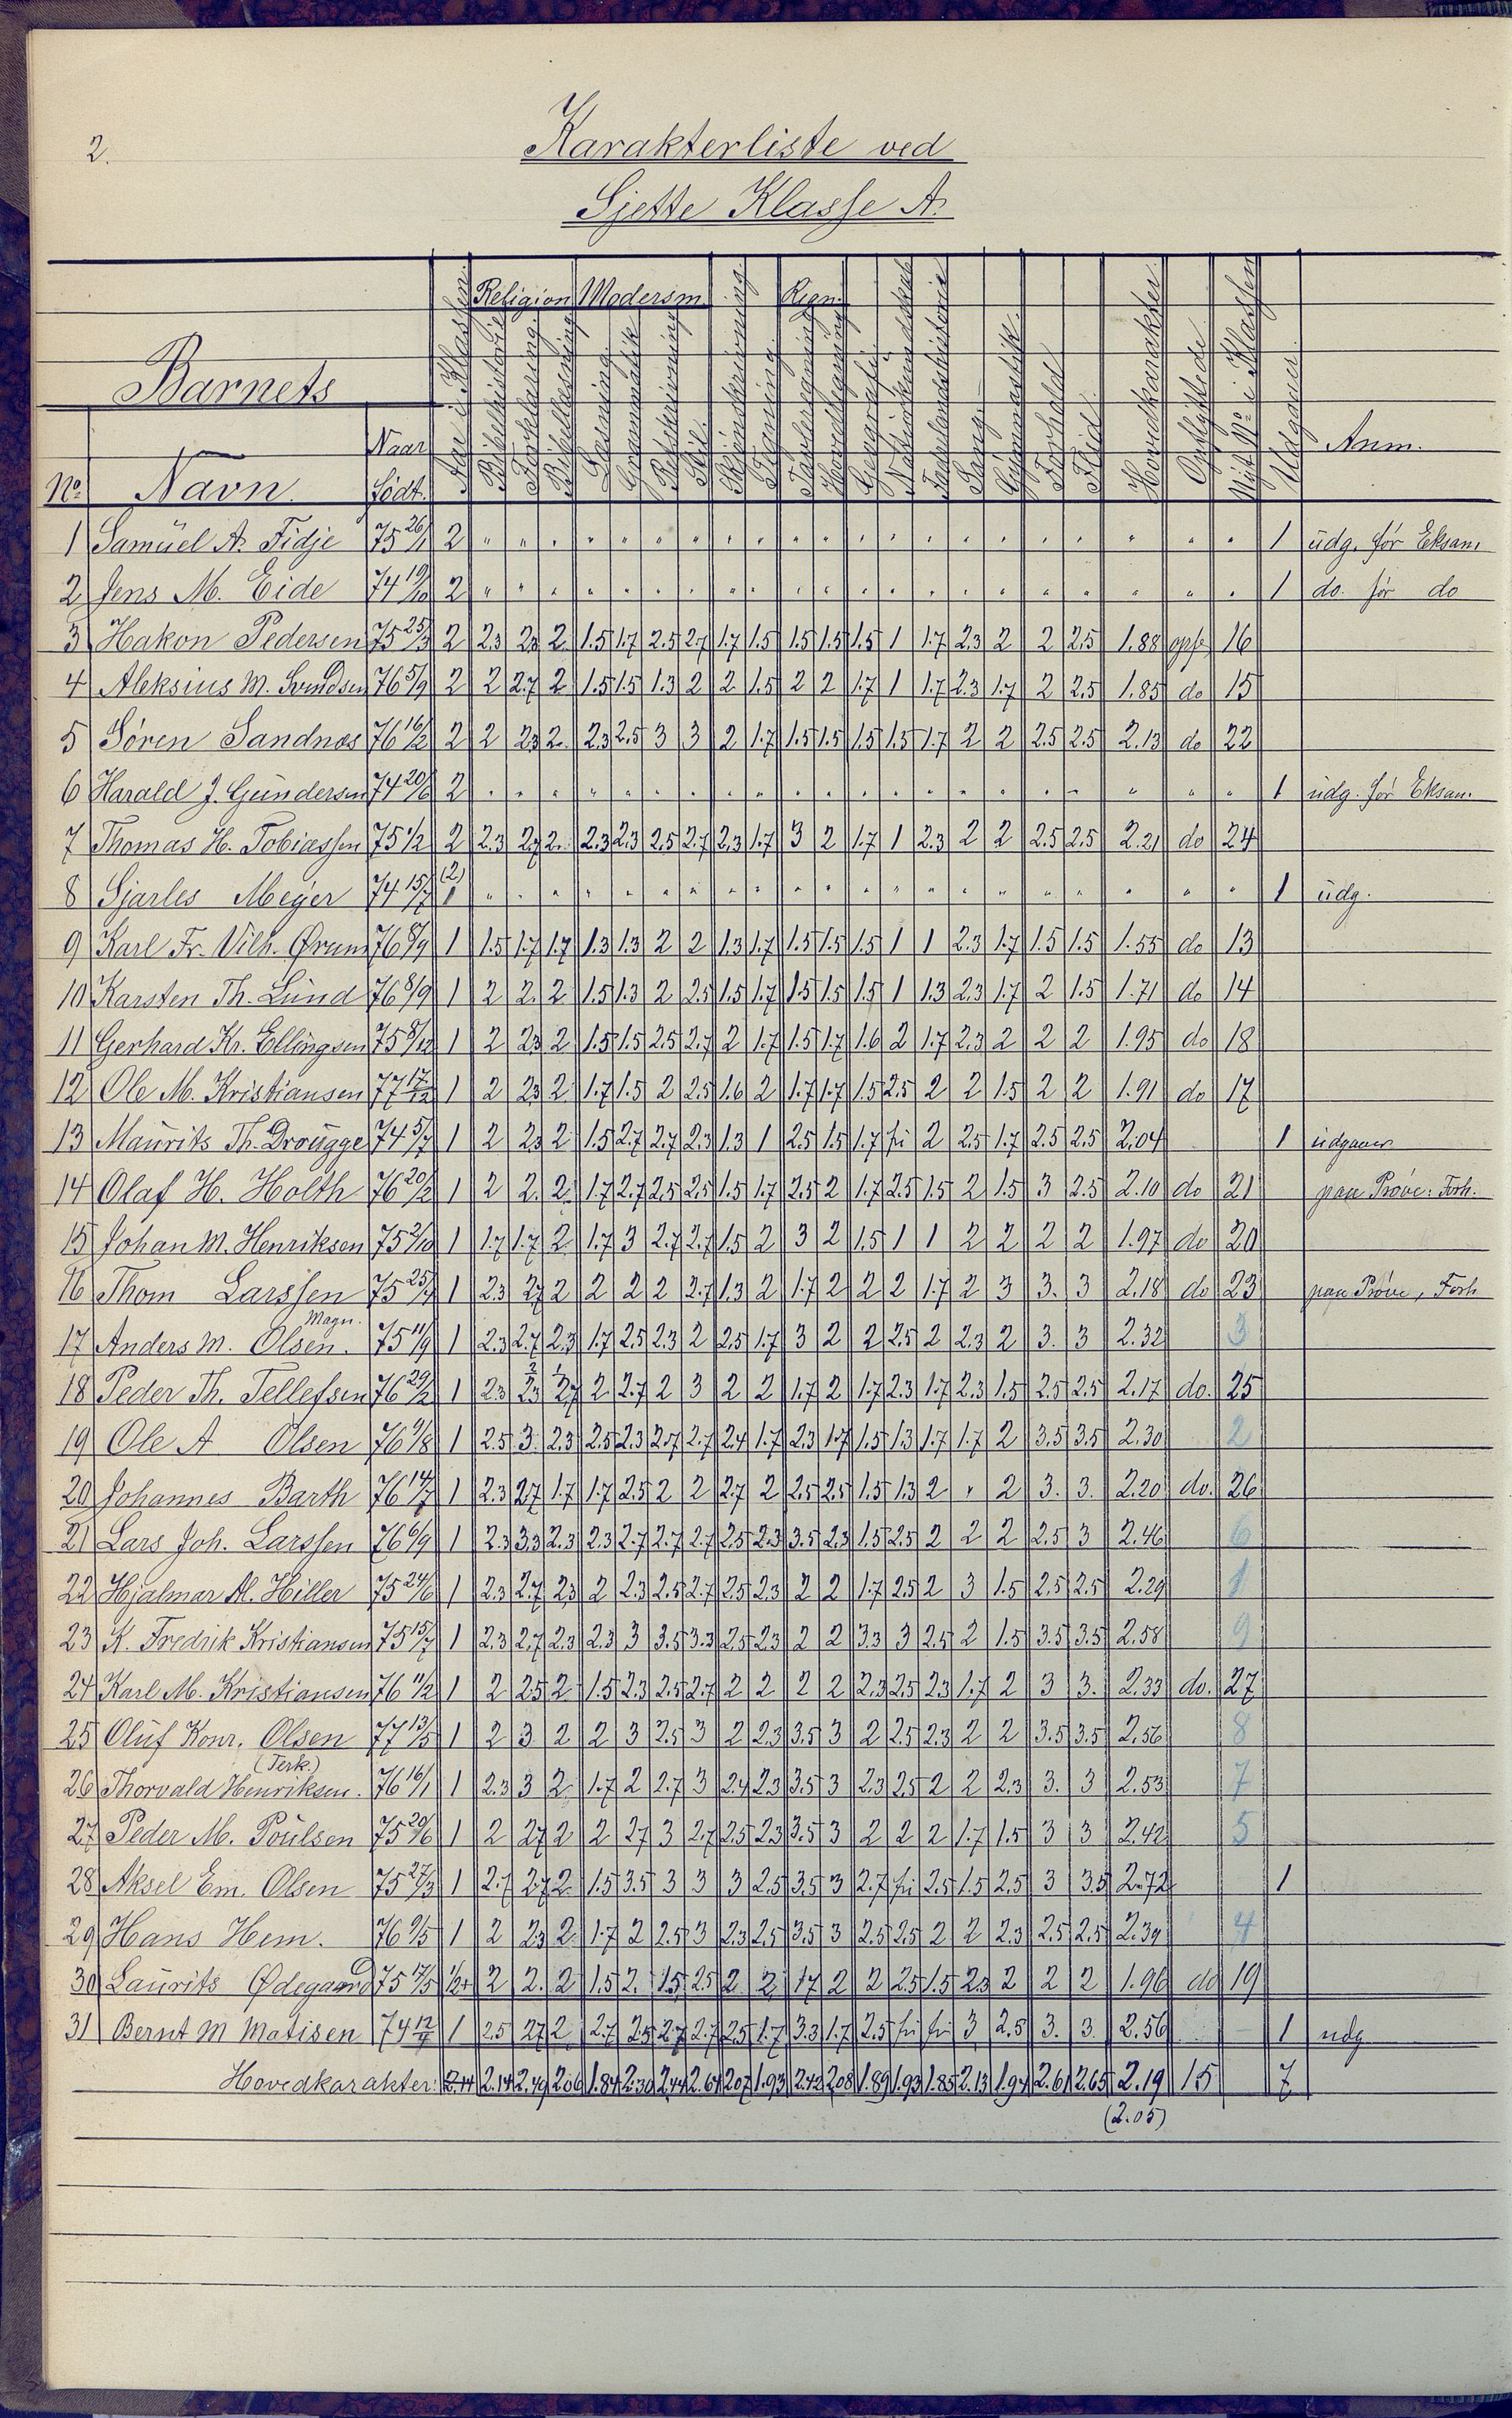 2.
Karakterliste ved
Sjette Klasse A.
Religion Modersm. Regn.
Barnets
No. Navn. Naar født. Aar i Klassen. Bibelhistorie Forklaring. Bibellæsning Læsning. Grammatik Retskrivning Stil. Skjønskrivning. Tegning. Tavleregning Hovedregning Geografi. Naturkundskab Fædrelandshistorie Sang. Gymnastik. Forhold Flid. Hovedkarakter. Opflyttede. Nyt No i Klassen Udgaaer. Anm.
1 Samuel A. Fidje 75 26/1 2 " " " " " " " " " " " " " " " " " " " " " 1 udg. før Eksam.
2 Jens M. Eide 74 19/10 2 " " " " " " " " " " " " " " " " " " " " " 1 do. før do
3 Hakon Pedersen 75 25/3 2 2.3 2.3 2. 1.5 1.7 2.5 2.7 1.7 1.5 1.5 1.5 1.5 1 1.7 2.3 2 2 2.5 1.88 opf. 16
4 Aleksius M. Svendsen 76 5/9 2 2 2.7 2 1.5 1.5 1.3 2 2 1.5 2 2 1.7 1 1.7 2.3 1.7 2 2.5 1.85 do 15
5 Søren Sandnæs 76 16/2 2 2 2.3 2. 2.3 2.5 3 3 2 1.7 1.5 1.5 1.5 1.5 1.7 2 2 2.5 2.5 2.13 do 22
6 Harald J. Gundersen 74 20/6 2 " " " " " " " " " " " " " " " " " " " " " 1 udg. før Eksam.
7 Thomas H. Tobiassen 75 1/2 2 2.3 2.7 2. 2.3 2.3 2.5 2.7 2.3 1.7 3 2 1.7 1 2.3 2 2 2.5 2.5 2.21 do 24
8 Sjarles Meyer 74 15/7 (2) 1 " " " " " " " " " " " " " " " " " " " " " 1 udg.
9 Karl Fr. Vilh. Ørum 76 8/9 1 1.5 1.7 1.7 1.3 1.3 2 2 1.3 1.7 1.5 1.5 1.5 1 1 2.3 1.7 1.5 1.5 1.55 do 13
10 Karsten Th. Lund 76 8/9 1 2 2. 2 1.5 1.3 2 2.5 1.5 1.7 1.5 1.5 1.5 1 1.3 2.3 1.7 2 1.5 1.71 do 14
11 Gerhard Kr. Ellingsen 75 8/12 1 2 2.3 2 1.5 1.5 2.5 2.7 2 1.7 1.5 1.7 1.6 2 1.7 2.3 2 2 2 1.95 do 18
12 Ole M. Kristiansen 77 17/12 1 2 2.3 2 1.7 1.5 2 2.5 1.6 2 1.7 1.7 1.5 2.5 2 2 1.5 2 2 1.91 do 17
13 Maurits Th. Drougge 74 5/7 1 2 2.3 2 1.5 2.7 2.7 2.3 1.3 1 2.5 1.5 1.7 fri 2 2.5 1.7 2.5 2.5 2.04 1 udgaaer
14 Olaf H. Holth 76 20/2 1 2 2. 2. 1.7 2.7 2.5 2.5 1.5 1.7 2.5 2 1.7 2.5 1.5 2 1.5 3 2.5 2.10 do 21 paa Prøve: Forh.
15 Johan M. Henriksen 75 2/10 1 1.7 1.7 2 1.7 3 2.7 2.7 1.5 2 3 2 1.5 1 1 2 2 2 2 1.97 do 20
16 Thom Larssen 75 25/7 1 2.3 2.7 2 2 2 2 2.7 1.3 2 1.7 2 2 2 1.7 2 3 3. 3 2.18 do 23 paa Prøve, Forh
Magn.
17 Anders M. Olsen. 75 11/9 1 2.3 2.7 2.3 1.7 2.5 2.3 2 2.5 1.7 3 2 2 2.5 2 2.3 2 3. 3 2.32 3
18 Peder Th. Tellefsen 76 29/2 1 2.3 2.3 2.7 2 2.7 2 3 2 2 1.7 2 1.7 2.3 1.7 2.3 1.5 2.5 2.5 2.17 do. 25
19 Ole A Olsen 76 9/8 1 2.5 3. 2.3 2.5 2.3 2.7 2.7 2.4 1.7 2.3 1.7 1.5 1.3 1.7 1.7 2 3.5 3.5 2.30 2
20 Johannes Barth 76 14/7 1 2.3 2.7 1.7 1.7 2.5 2 2 2.7 2 2.5 2.5 1.5 1.3 2 " 2 3. 3. 2.20 do. 26
21 Lars Joh. Larssen 76 6/9 1 2.3 3.3 2.3 2.3 2.7 2.7 2.7 2.5 2.3 3.5 2.3 1.5 2.5 2 2 2 2.5 3 2.46 6
22 Hjalmar M. Hiller 75 24/6 1 2.3 2.7 2.3 2 2.3 2.5 2.7 2.5 2.3 2 2 1.7 2.5 2 3 1.5 2.5 2.5 2.29 1
23 K. Fredrik Kristiansen 75 15/7 1 2.3 2.7 2.3 2.3 3 3.5 3.3 2.5 2.3 2 2 3.3 3 2.5 2 1.5 3.5 3.5 2.58 9
24 Karl M. Kristiansen 76 11/2 1 2 2.5 2 1.5 2.3 2.5 2.7 2 2 2 2 2.3 2.5 2.3 1.7 2 3 3. 2.33 do. 27
25 Oluf Konr. Olsen 77 13/5 1 2 3 2 2 3 2.5 3 2 2.3 3.5 3 2 2.5 2.3 2 2 3.5 3.5 2.56 8
(Terk.)
26 Thorvald Henriksen. 76 16/1 1 2.3 3 2 1.7 2 2.7 3 2.4 2.3 3.5 3 2.3 2.5 2 2 2.3 3. 3 2.53 7
27 Peder M. Poulsen 75 20/6 1 2 2.7 2 2 2.7 3 2.7 2.5 2.3 3.5 3 2 2 2 1.7 1.5 3 3 2.42 5
28 Aksel Em. Olsen 75 27/3 1 2.7 2.7 2 1.5 3.5 3 3 3 2.5 3.5 3 2.7 fri 2.5 1.5 2.5 3 3.5 2.72 1
29 Hans Hem. 76 9/5 1 2 2.3 2 1.7 2 2.5 3 2.3 2.5 3.5 3 2.5 2.5 2 2 2.3 2.5 2.5 2.39 4
30 Laurits Ødegaard 75 17/5 1/2+ 2 2. 2 1.5 2. 1.5 2.5 2 2 1.7 2 2 2.5 1.5 2.3 2 2 2 1.96 do 19
31 Bernt M Matisen 74 12/7 1 2.5 2.7 2 2.7 2.5 2.7 2.7 2.5 1.7 3.3 1.7 2.5 fri fri 3 2.5 3. 3. 2.56 1 udg
Hovedkarakter: 2.14 2.14 2.49 2.06 1.84 2.30 2.44 2.64 2.07 1.93 2.42 2.08 1.89 1.93 1.85 2.13 1.94 2.61 2.65 2.19 15 7
(2.05)